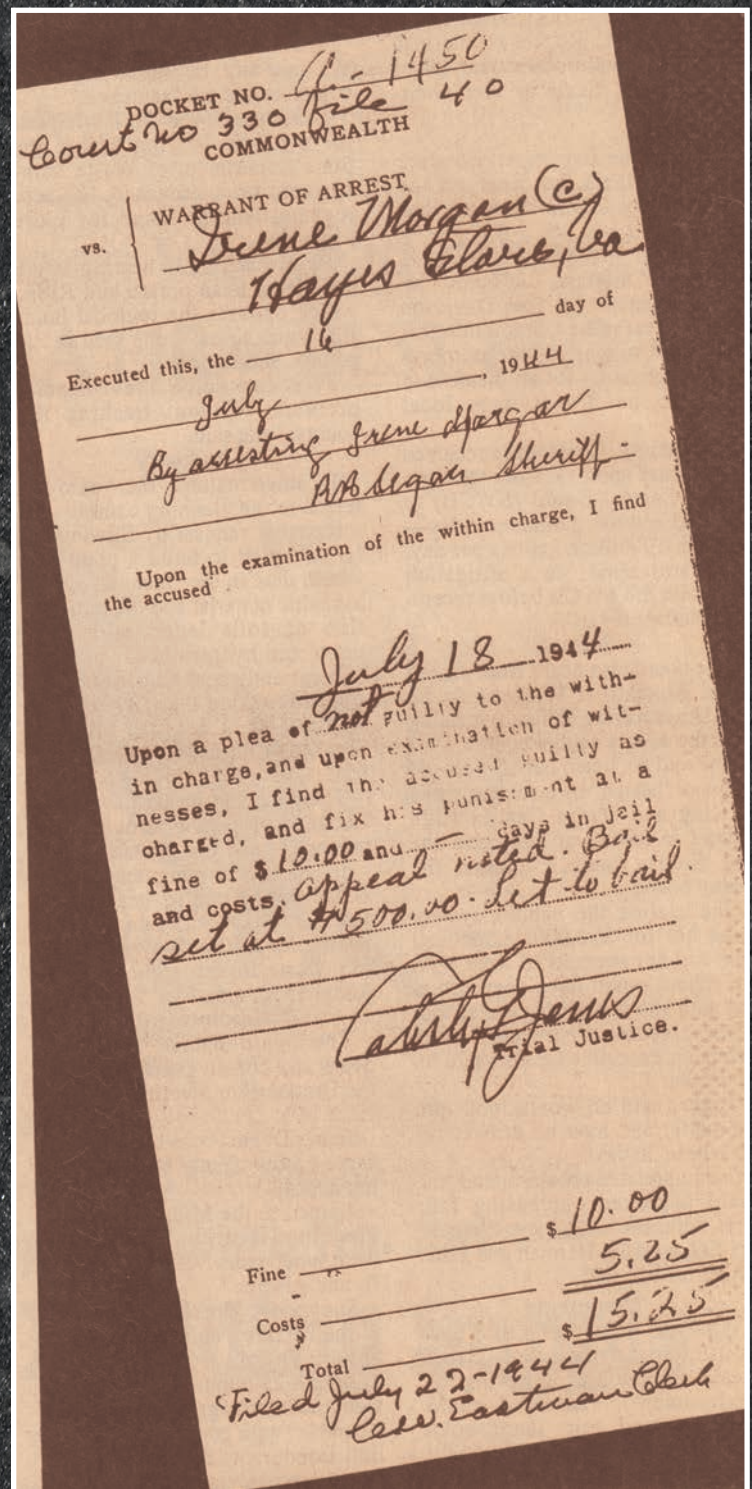 DOCKET NO. A-1450
Court No 330 file 40
COMMONWEALTH
vs.
WARRANT OF ARREST
Irene Morgan (c)
Hayes Store, Va.
Executed this, the 16 day of
July, 1944
By arresting Irene Morgan
RB Segar Sheriff.
Upon the examination of the within charge, I find
the accused
July 18 1944
Upon a plea of not guilty to the with-
in charge, and upon examination of wit-
nesses, I find the accused guilty as
charged, and fix his punisiment at a
fine of $10.00 and — days in jail
and costs. Appeal noted. Bail
set at $500.00. Let to bail.
Trial Justice.
Fine $10.00
Costs 5.25
Total $15.25
Filed July 22-1944
Eastman Clerk